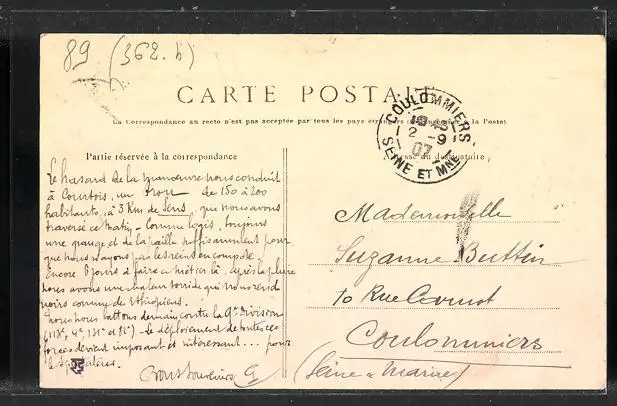 89 (362. b)
CARTE POSTALE
La Correspondance au recto n'est pas acceptée par tous les pays étrangers (Se renseigner à la Poste)
COULOMMIERS
2 -9
07
SEINE ET MNE
Partie réservée à la correspondance
Adresse du destinataire
Le hasard de la manœuvre nous conduit
à Courtois, un trou de 150 à 200
habitants, à 3 Km de Sens, que nous avons
traversé ce matin - Comme logis, toujours
une grange et de la paille, suffisamment pour
que nous n'ayons pas les reins en compote.
Encore 8 jours à faire ce métier là, après la pluie
nous avons une chaleur torride qui nous rend
noirs comme des Ethiopiens.
Nous nous battons demain contre la 9e division
(113e, 4e, 131e et 82e) - Le déploiement de toutes ces
forces devient imposant et intéressant ... pour
les
Bons Souvenirs
Mademoiselle
Suzanne Buttin
10 Rue
Coulommiers
(Seine & Marne)